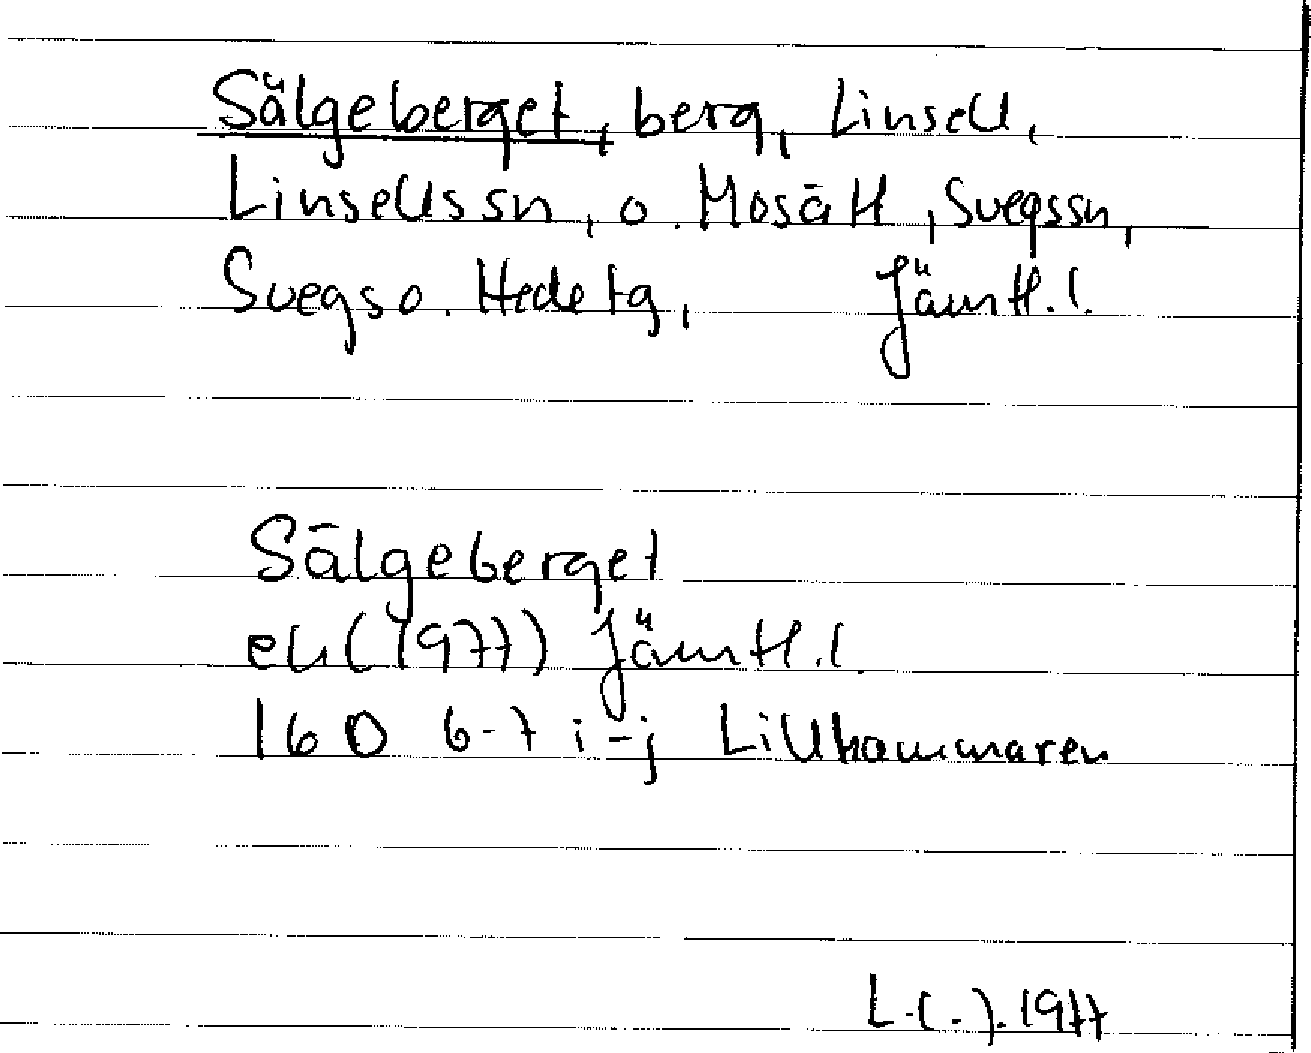 Sälgeberget, berg, Linsell,
Linsells sn, o. Mosätt, Svegs sn,
Svegs o. Hede tg, Jämtl. l.
Sälgeberget
ek (1977) Jämtl. l.
16D 6-7 i-j Lillhammaren
L.(-). 1977